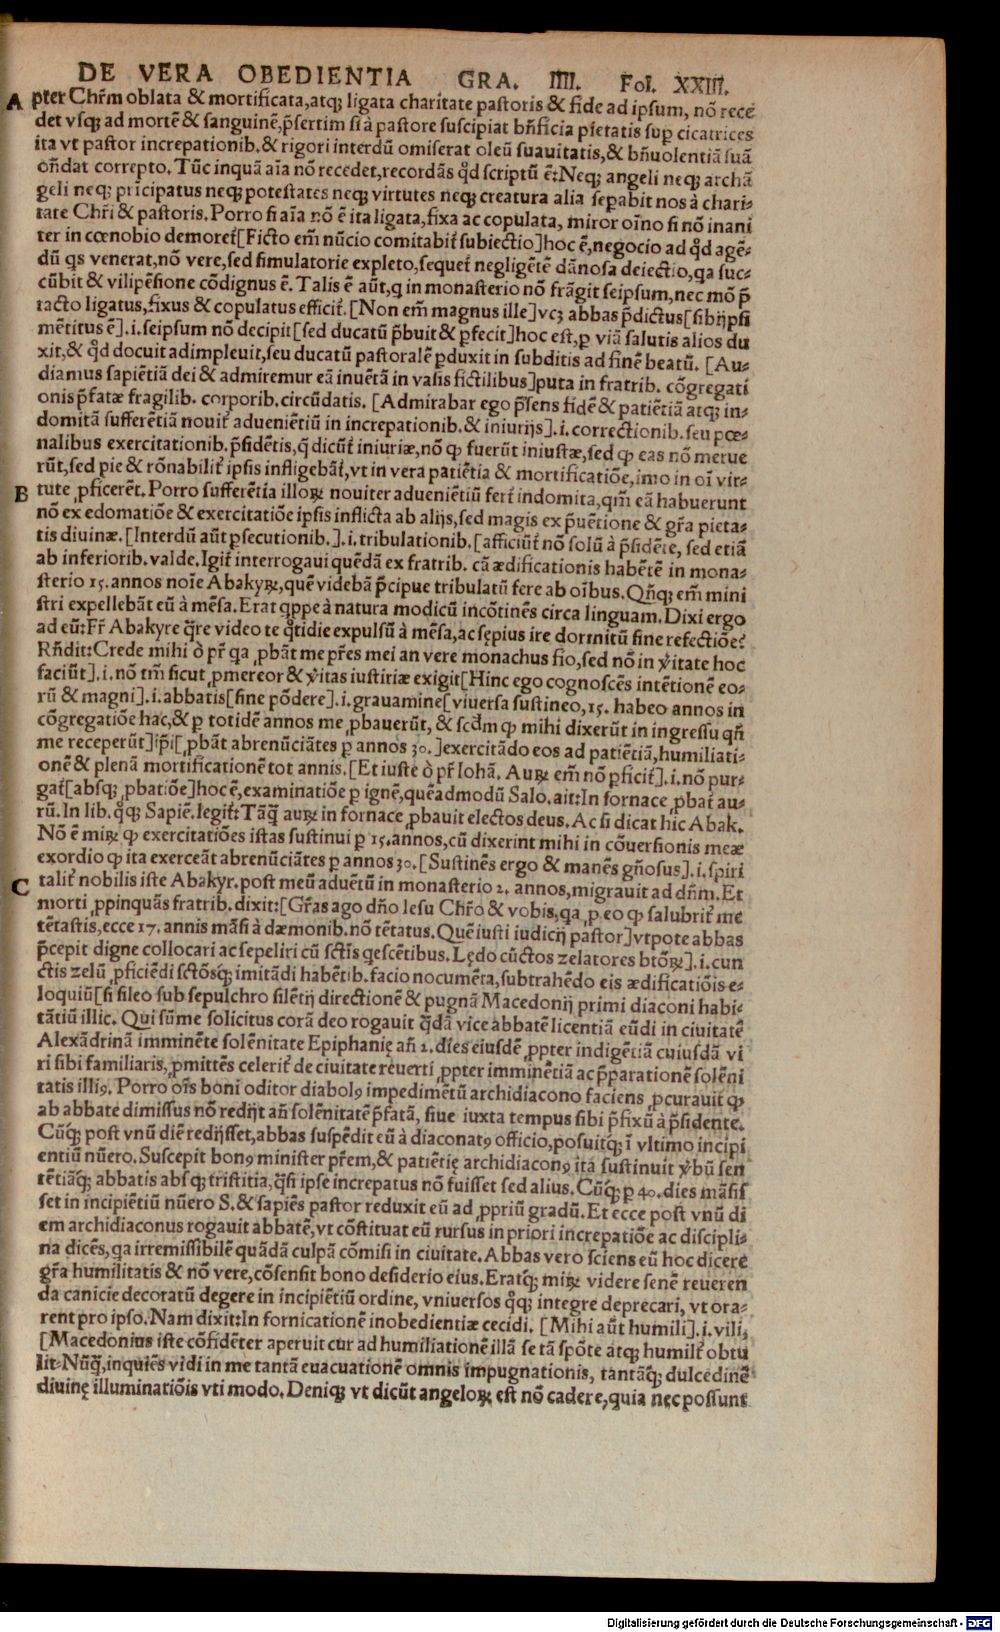 DE VERA OBEDIENTIA GRA. IIII. Fol. XXIII.
A pter Chr̃m oblata & mortificata, atq; ligata charitate pastoris & fide ad ipsum, nõ rece
det vsq; ad mortẽ & sanguinẽ, p̃sertim si à pastore suscipiat bñficia pietatis sup cicatrices
ita vt pastor increpationib. & rigori interdũ omiserat oleũ suauitatis, & bñuolentiã suã
oñdat correpto. Tũc inquã aĩa nõ recedet, recordãs qđ scriptũ ẽ: Neq; angeli neq; archã
geli neq; prĩcipatus neq; potestates neq; virtutes neq; creatura alia sepabit nos à chari-
tate Chr̃i & pastoris. Porro si aĩa nõ ẽ ita ligata, fixa ac copulata, miror oĩno si nõ inani
ter in cœnobio demoret̃ [Ficto em̃ nũcio comitabit̃ subiectio] hoc ẽ, negocio ad qđ agẽ-
dũ qs venerat, nõ vere, sed simulatorie expleto, sequet̃ negligẽtẽ dãnosa deiectio, qa suc-
cũbit & vilipẽsione cõdignus ẽ. Talis ẽ aũt, q in monasterio nõ frãgit seipsum, nec mõ p̃
tacto ligatus, fixus & copulatus efficit̃. [Non em̃ magnus ille] vcꝫ abbas p̃dictus [sibijpsi
mẽtitus ẽ] .i. seipsum nõ decipit [sed ducatũ p̃buit & pfecit] hoc est, p viã salutis alios du
xit, & qđ docuit adimpleuit, seu ducatũ pastoralẽ pduxit in subditis ad finẽ beatũ. [Au-
diamus sapiẽtiã dei & admiremur eã inuẽtã in vasis fictilibus] puta in fratrib. cõgregati
onis p̃fatæ fragilib. corporib. circũdatis. [Admirabar ego p̃sens fidẽ & patiẽtiã atq; in-
domitã sufferẽtiã nouit̃ adueniẽtiũ in increpationib. & iniurijs] .i. correctionib. seu pœ-
nalibus exercitationib. p̃sidẽtis, q̃ dicũt̃ iniuriæ, nõ ꝙ fuerũt iniustæ, sed ꝙ eas nõ merue
rũt, sed pie & rõnabilit̃ ipsis infligebãt̃, vt in vera patiẽtia & mortificatiõe, imo in oĩ vir-
B tute ꝓficerẽt. Porro sufferẽtia illoꝝ nouiter adueniẽtiũ fert̃ indomita, qm̃ eã habuerunt
nõ ex edomatiõe & exercitatiõe ipsis inflicta ab alijs, sed magis ex p̃uẽtione & gr̃a pieta-
tis diuinæ. [Interdũ aũt psecutionib.] .i. tribulationib. [afficiũt̃ nõ solũ à p̃sidẽte, sed etiã
ab inferiorib. valde. Igit̃ interrogaui quẽdã ex fratrib. cã ædificationis habẽtẽ in mona-
sterio 15. annos noĩe Abakyꝝ, quẽ videbã p̃cipue tribulatũ fere ab oĩbus. Qñq; em̃ mini
stri expellebãt eũ à mẽsa. Erat qppe à natura modicũ incõtinẽs circa linguam. Dixi ergo
ad eũ: Fr̃ Abakyre q̃re video te q̃tidie expulsũ à mẽsa, ac sępius ire dormitũ sine refectiõe?
Rñdit: Crede mihi ò pr̃ qa ꝓbãt me pr̃es mei an vere monachus fio, sed nõ in ỹitate hoc
faciũt] .i. nõ tm̃ sicut ꝓmereor & ỹitas iustitiæ exigit [Hinc ego cognoscẽs intẽtionẽ eo-
rũ & magni] .i. abbatis [sine põdere] .i. grauamine [viuersa sustineo, 15. habeo annos in
cõgregatiõe hac, & p totidẽ annos me ꝓbauerũt, & scđm ꝙ mihi dixerũt in ingressu qñ
me receperũt] ip̃i [ꝓbãt abrenũciãtes p annos 30.] exercitãdo eos ad patiẽtiã, humiliati-
onẽ & plenã mortificationẽ tot annis. [Et iuste ò pr̃ Iohã. Auꝝ em̃ nõ pficit̃] .i. nõ pur-
gat̃ [absq; ꝓbatiõe] hoc ẽ, examinatiõe p ignẽ, quẽadmodũ Salo. ait: In fornace ꝓbat̃ au-
rũ. In lib. q̃q; Sapiẽ. legit̃: Tãq̃ auꝝ in fornace ꝓbauit electos deus. Ac si dicat hic Abak.
Nõ ẽ miꝝ ꝙ exercitatiões istas sustinui p 15. annos, cũ dixerint mihi in cõuersionis meæ
exordio ꝙ ita exerceãt abrenũciãtes p annos 30. [Sustinẽs ergo & manẽs gñosus] .i. spiri
C talit̃ nobilis iste Abakyr. post meũ aduẽtũ in monasterio 2. annos, migrauit ad dñm. Et
morti ꝓpinquãs fratrib. dixit: [Gr̃as ago dño Iesu Chr̃o & vobis, qa ꝓ eo ꝙ salubrit̃ me
tẽtastis, ecce 17. annis mãsi à dæmonib. nõ tẽtatus. Quẽ iusti iudicij pastor] vtpote abbas
p̃cepit digne collocari ac sepeliri cũ sctĩs qescẽtibus. Lędo cũctos zelatores btõꝝ] .i. cun
ctis zelũ ꝓficiẽdi sctõsq; imitãdi habẽtib. facio nocumẽta, subtrahẽdo eis ædificatiõis e-
loquiũ [si sileo sub sepulchro silẽtij directionẽ & pugnã Macedonij primi diaconi habi-
tãtiũ illic. Qui sũme solicitus corã deo rogauit q̃dã vice abbatẽ licentiã eũdi in ciuitatẽ
Alexãdrinã imminẽte solẽnitate Epiphanię añ 2. dies eiusdẽ ꝓpter indigẽtiã cuiusdã vi
ri sibi familiaris, ꝓmittẽs celerit̃ de ciuitate reuerti ꝓpter imminẽtiã ac p̃parationẽ solẽni
tatis illiꝰ. Porro oĩs boni oditor diabolꝰ impedimẽtũ archidiacono faciens ꝓcurauit ꝙ
ab abbate dimissus nõ redijt añ solẽnitatẽ p̃fatã, siue iuxta tempus sibi p̃fixũ à p̃sidente.
Cũq; post vnũ diẽ redijsset, abbas suspẽdit eũ à diaconatꝰ officio, posuitq; ĩ vltimo incipi
entiũ nũero. Suscepit bonꝰ minister pr̃em, & patiẽtię archidiaconꝰ ita sustinuit ỹbũ sen
tẽtiãq; abbatis absq; tristitia, q̃si ipse increpatus nõ fuisset sed alius. Cũq; p 40. dies mãsis
set in incipiẽtiũ nũero S. & sapiẽs pastor reduxit eũ ad ꝓpriũ gradũ. Et ecce post vnũ di
em archidiaconus rogauit abbatẽ, vt cõstituat eũ rursus in priori increpatiõe ac discipli-
na dicẽs, qa irremissibilẽ quãdã culpã cõmisi in ciuitate. Abbas vero sciens eũ hoc dicere
gr̃a humilitatis & nõ vere, cõsensit bono desiderio eius. Eratq; miꝝ videre senẽ reueren
da canicie decoratũ degere in incipiẽtiũ ordine, vniuersos q̃q; integre deprecari, vt ora-
rent pro ipso. Nam dixit: In fornicationẽ inobedientiæ cecidi. [Mihi aũt humili] .i. vili,
[Macedonius iste cõfidẽter aperuit cur ad humiliationẽ illã se tã spõte atq; humilit̃ obtu
lit: Nũq̃, inquiẽs vidi in me tantã euacuationẽ omnis impugnationis, tantãq; dulcedinẽ
diuinę illuminatiõis vti modo. Deniq; vt dicũt angeloꝝ est nõ cadere, quia nęc possunt
Digitalisierung gefördert durch die Deutsche Forschungsgemeinschaft - DFG